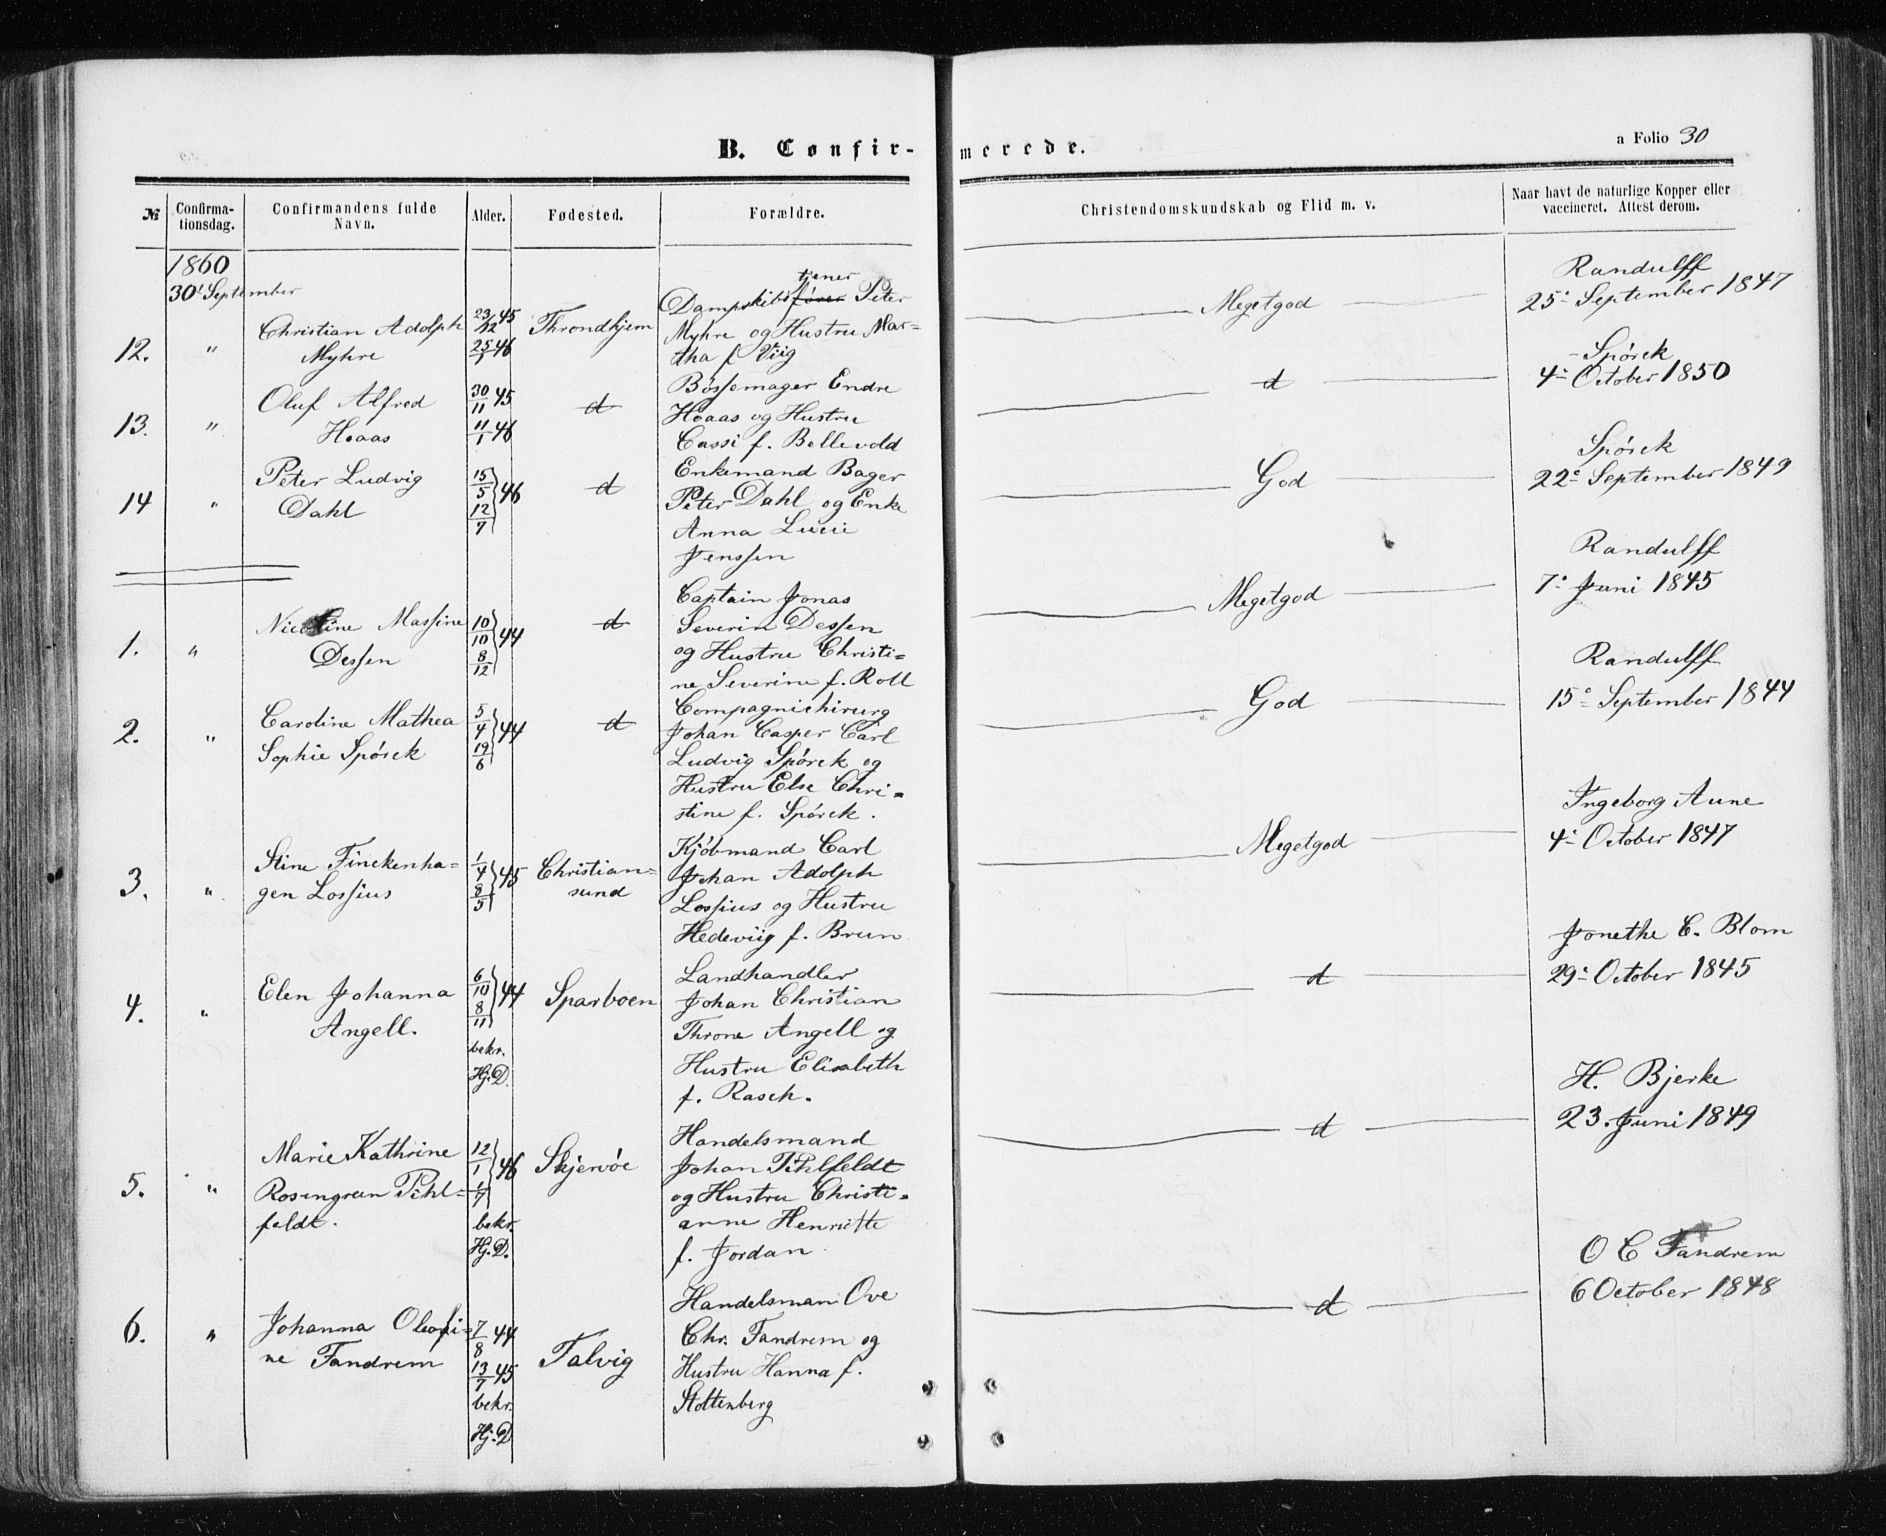 B. Confirmerede.
a Folio 30
№ Confirmationsdag. Confirmandens fulde Navn. Alder. Fødested. Forældre. Christendomskundskab og Flid m. v. Naar havt de naturlige Kopper eller vaccineret. Attest derom.
1860
30' September
12. " Christian Adolph Myhre 23/12 45 25/1 46 Throndhjem
tjener
Dampskibsfører Peter
Myhre og Hustru Mar-
tha f Viig
Megetgod
Randulff
25: September 1847
13. " Oluf Alfred Hoaas 30/11 45 11/1 46 d
Bössemager Endre
Hoaas og Hustru
Cassi f. Bellevold
d
Spörck
4: October 1850
14 " Peter Ludvig Dahl 15/5 12/7 46 d
Enkemand Bager
Peter Dahl og Enke
Anna Lucie
Jenssen
God
Spörck
22: September 1849
1. " Nicoline Massine Dessen 10/10 8/12 44 d
Captain Jonas
Severin Dessen
og Hustru Christi=
ne Severine f. Roll
Megetgod
Randulff
7: Juni 1845
2. " Caroline Mathea Sophie Spörck 5/4 19/6 44 d
Compagnichirurg
Johan Casper Carl
Ludvig Spörck og
Hustru Else Chri=
stine f. Spörck.
God
Randulff
15: September 1844
3. " Stine Finckenha=
gen Lossius 1/4 8/5 45 Christian=
sund
Kjöbmand Carl
Johan Adolph
Lossius og Hustru
Hedeviig f. Brun
Megetgod
Ingeborg Aune
4: October 1847
4. " Elen Johanna Angell. 6/10 8/11 44 bekr. Hj. D. Sparboen
Landhandler
Johan Christian
Throne Angell og
Hustru Elisabeth
f. Rasch.
d
Jonethe C. Blom
29: October 1845
5. " Marie Kathrine
Rosengreen Pihl=
feldt. 12/1 1/7 46 bekr. Hj. D. Skjervöe
Handelsmand
Johan Pihlfeldt
og Hustru Christi=
anne Henriette
f. Jordan
d
H. Bjerke
23. Juni 1849
6. " Johanna Oleofi=
ne Tandrem 7/8 44 13/7 45 bekr. Hj. D Talvig
Handelsman Ove
Chr. Tandrem og
Hustru Hanna f.
Stoltenberg
d
O C Tandrem
6 October 1848